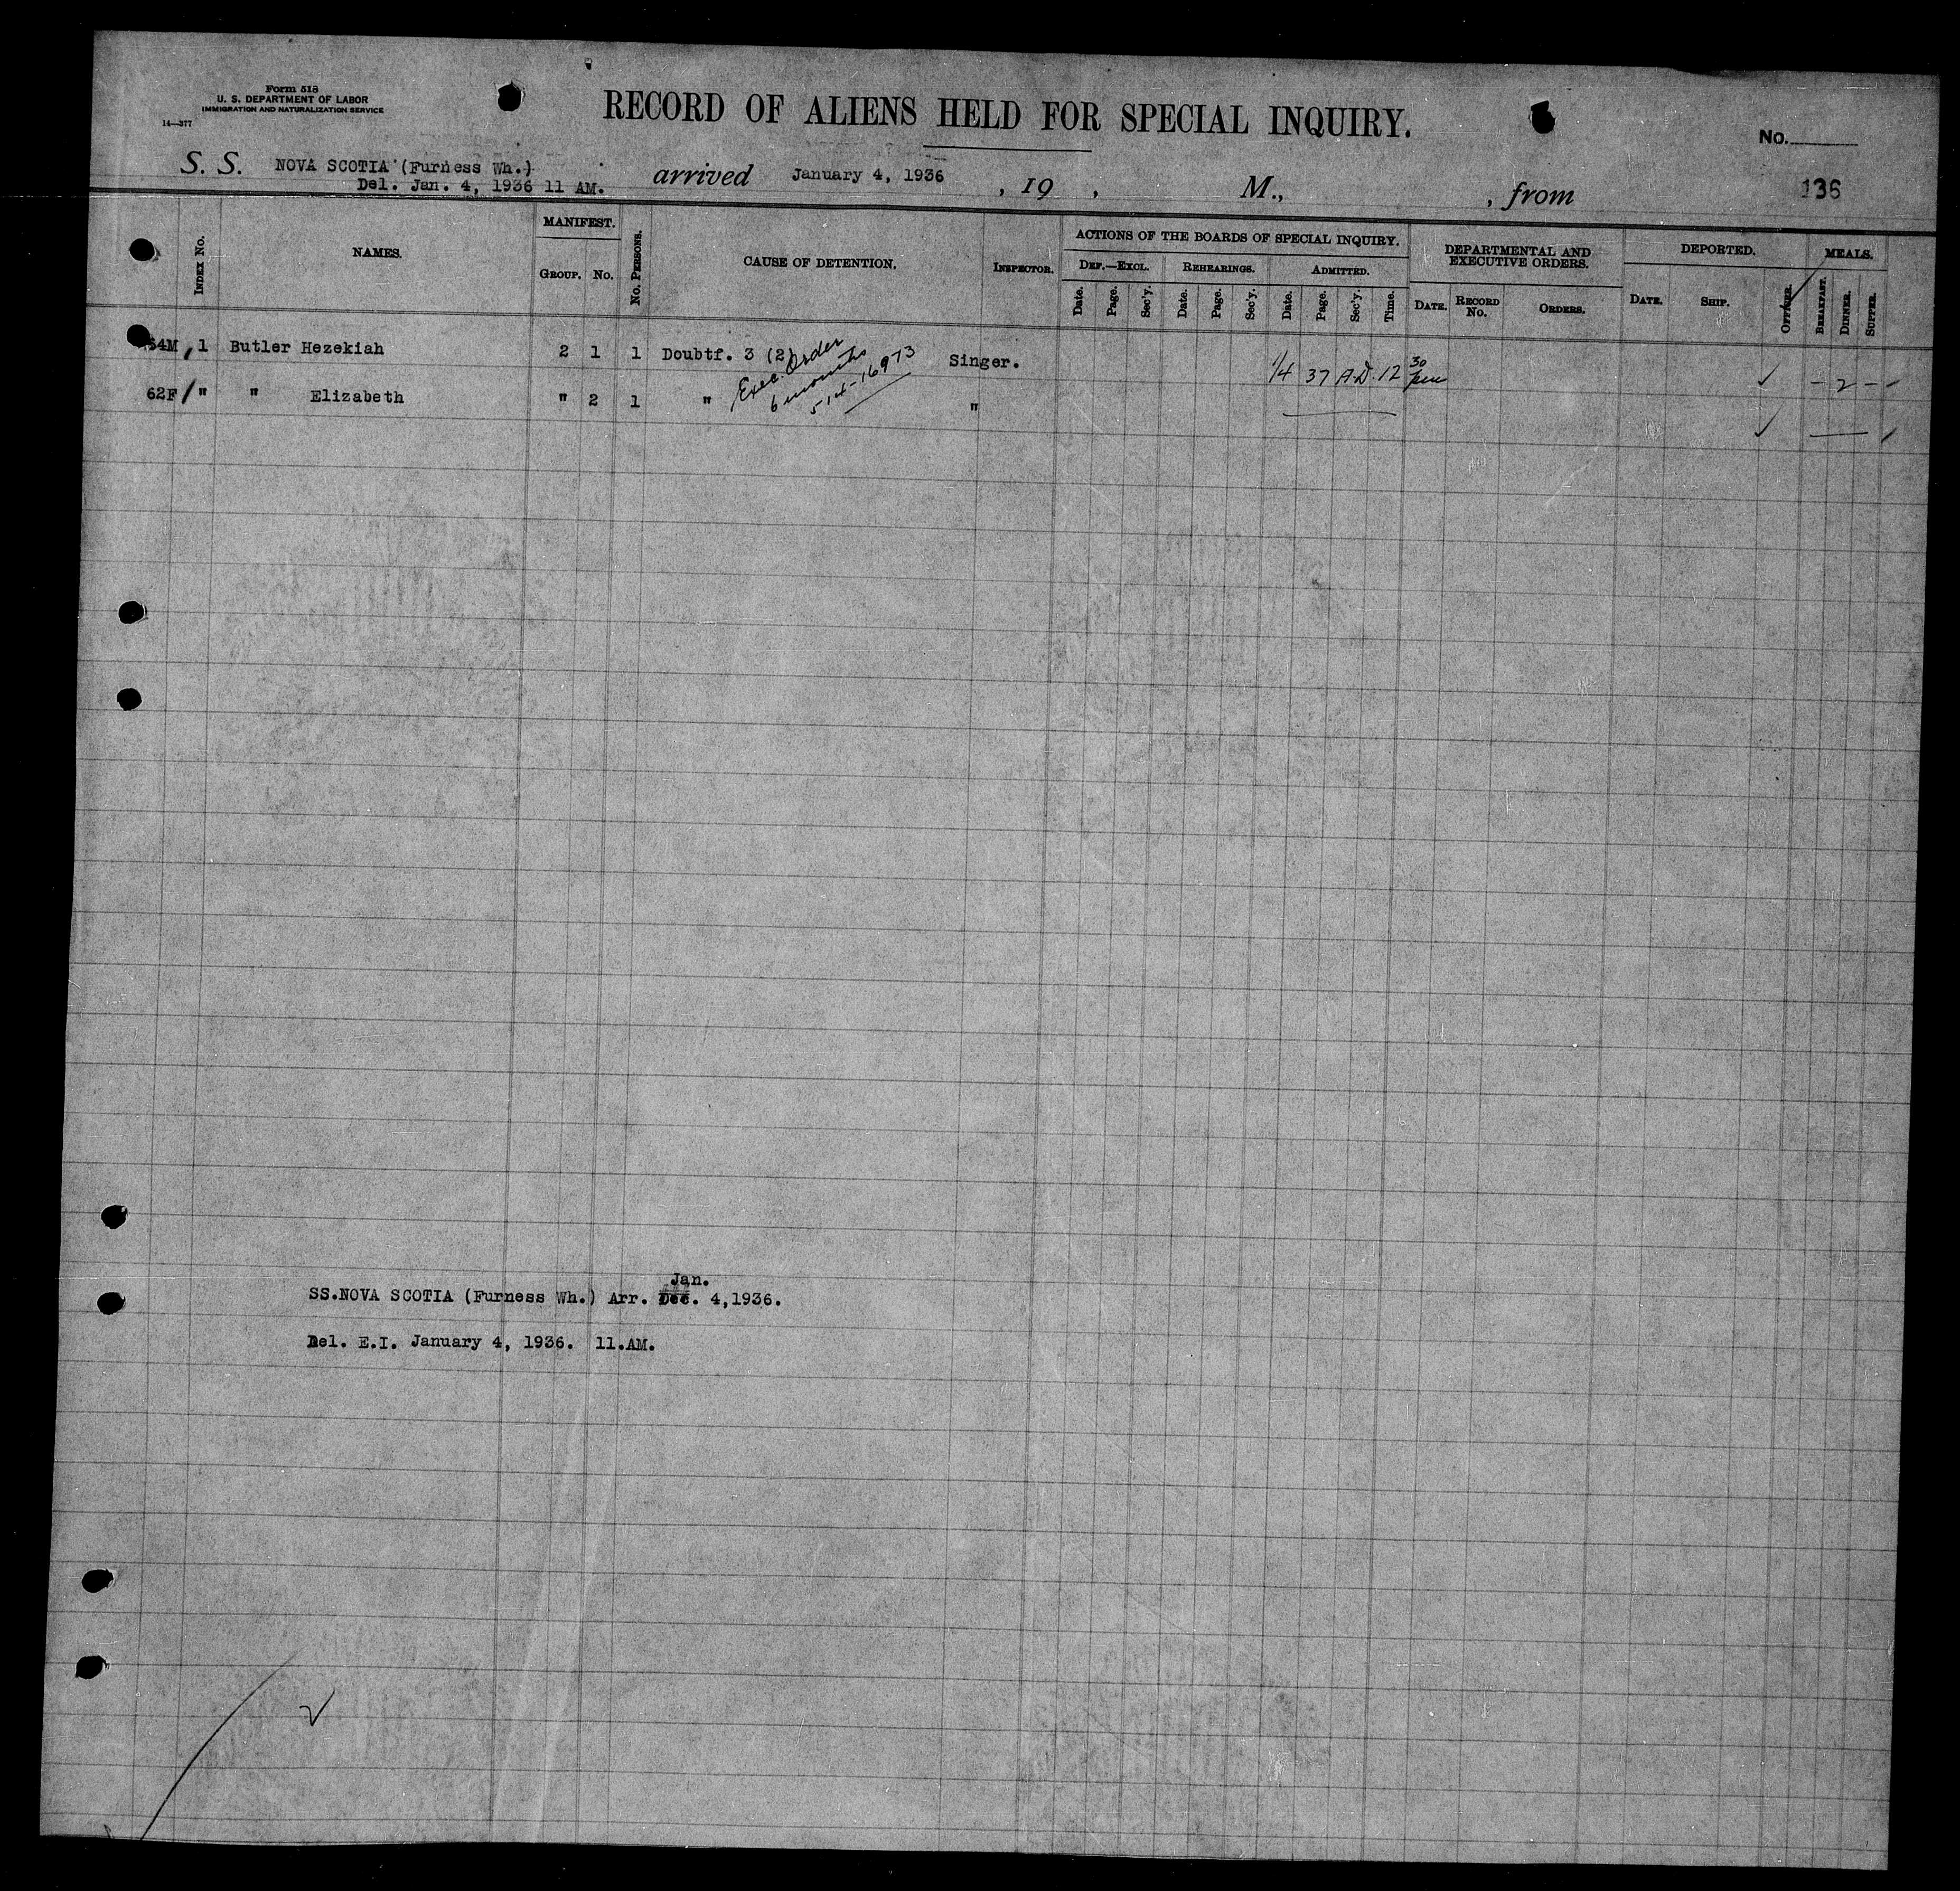 Form 518
U. S. DEPARTMENT OF LABOR
IMMIGRATION AND NATURALIZATION SERVICE
14—377
RECORD OF ALIENS HELD FOR SPECIAL INQUIRY.
No.
S. S. NOVA SCOTIA (Furness Wh.) arrived January 4, 1936 , 19 , M., , from 136
Del. Jan. 4, 1936 11 AM.
INDEX No. NAMES. MANIFEST. No. PERSONS. CAUSE OF DETENTION. INSPECTOR. ACTIONS OF THE BOARDS OF SPECIAL INQUIRY. DEPARTMENTAL AND EXECUTIVE ORDERS. DEPORTED. MEALS.
GROUP. No. DEF.—EXCL. REHEARINGS. ADMITTED.
Date. Page. Sec'y. Date. Page. Sec'y. Date. Page. Sec'y. Time. DATE. RECORD No. ORDERS. DATE. SHIP. OFFICER. BREAKFAST. DINNER. SUPPER.
64M 1 Butler Hezekiah 2 1 1 Doubtf. 3 (2) Singer. 1/4 37 A.D. 12 30 pm – 2 –
Exec. Order
6 months
62F / " " Elizabeth " 2 1 " "
SS.NOVA SCOTIA (Furness Wh.) Arr. Jan. 4,1936.
Del. E.I. January 4, 1936. 11.AM.